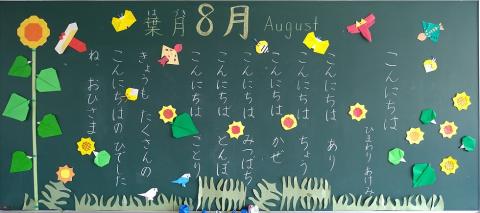 はづき
葉月 8月 August
こんにちは
ひまわり あけみ
こんにちは あり
こんにちは ちょう
こんにちは かぜ
こんにちは みつばち
こんにちは とんぼ
こんにちは ことり
きょうも たくさんの
こんにちはの ひでした
ね おひさま